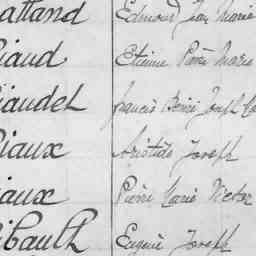 attand Edmond Jean Marie
iaud Etienne Pierre Marie
iaudel Francis René Joseph
iaux Aristide Joseph
iaux Pierre Marie Victor
ibault Eugène Joseph